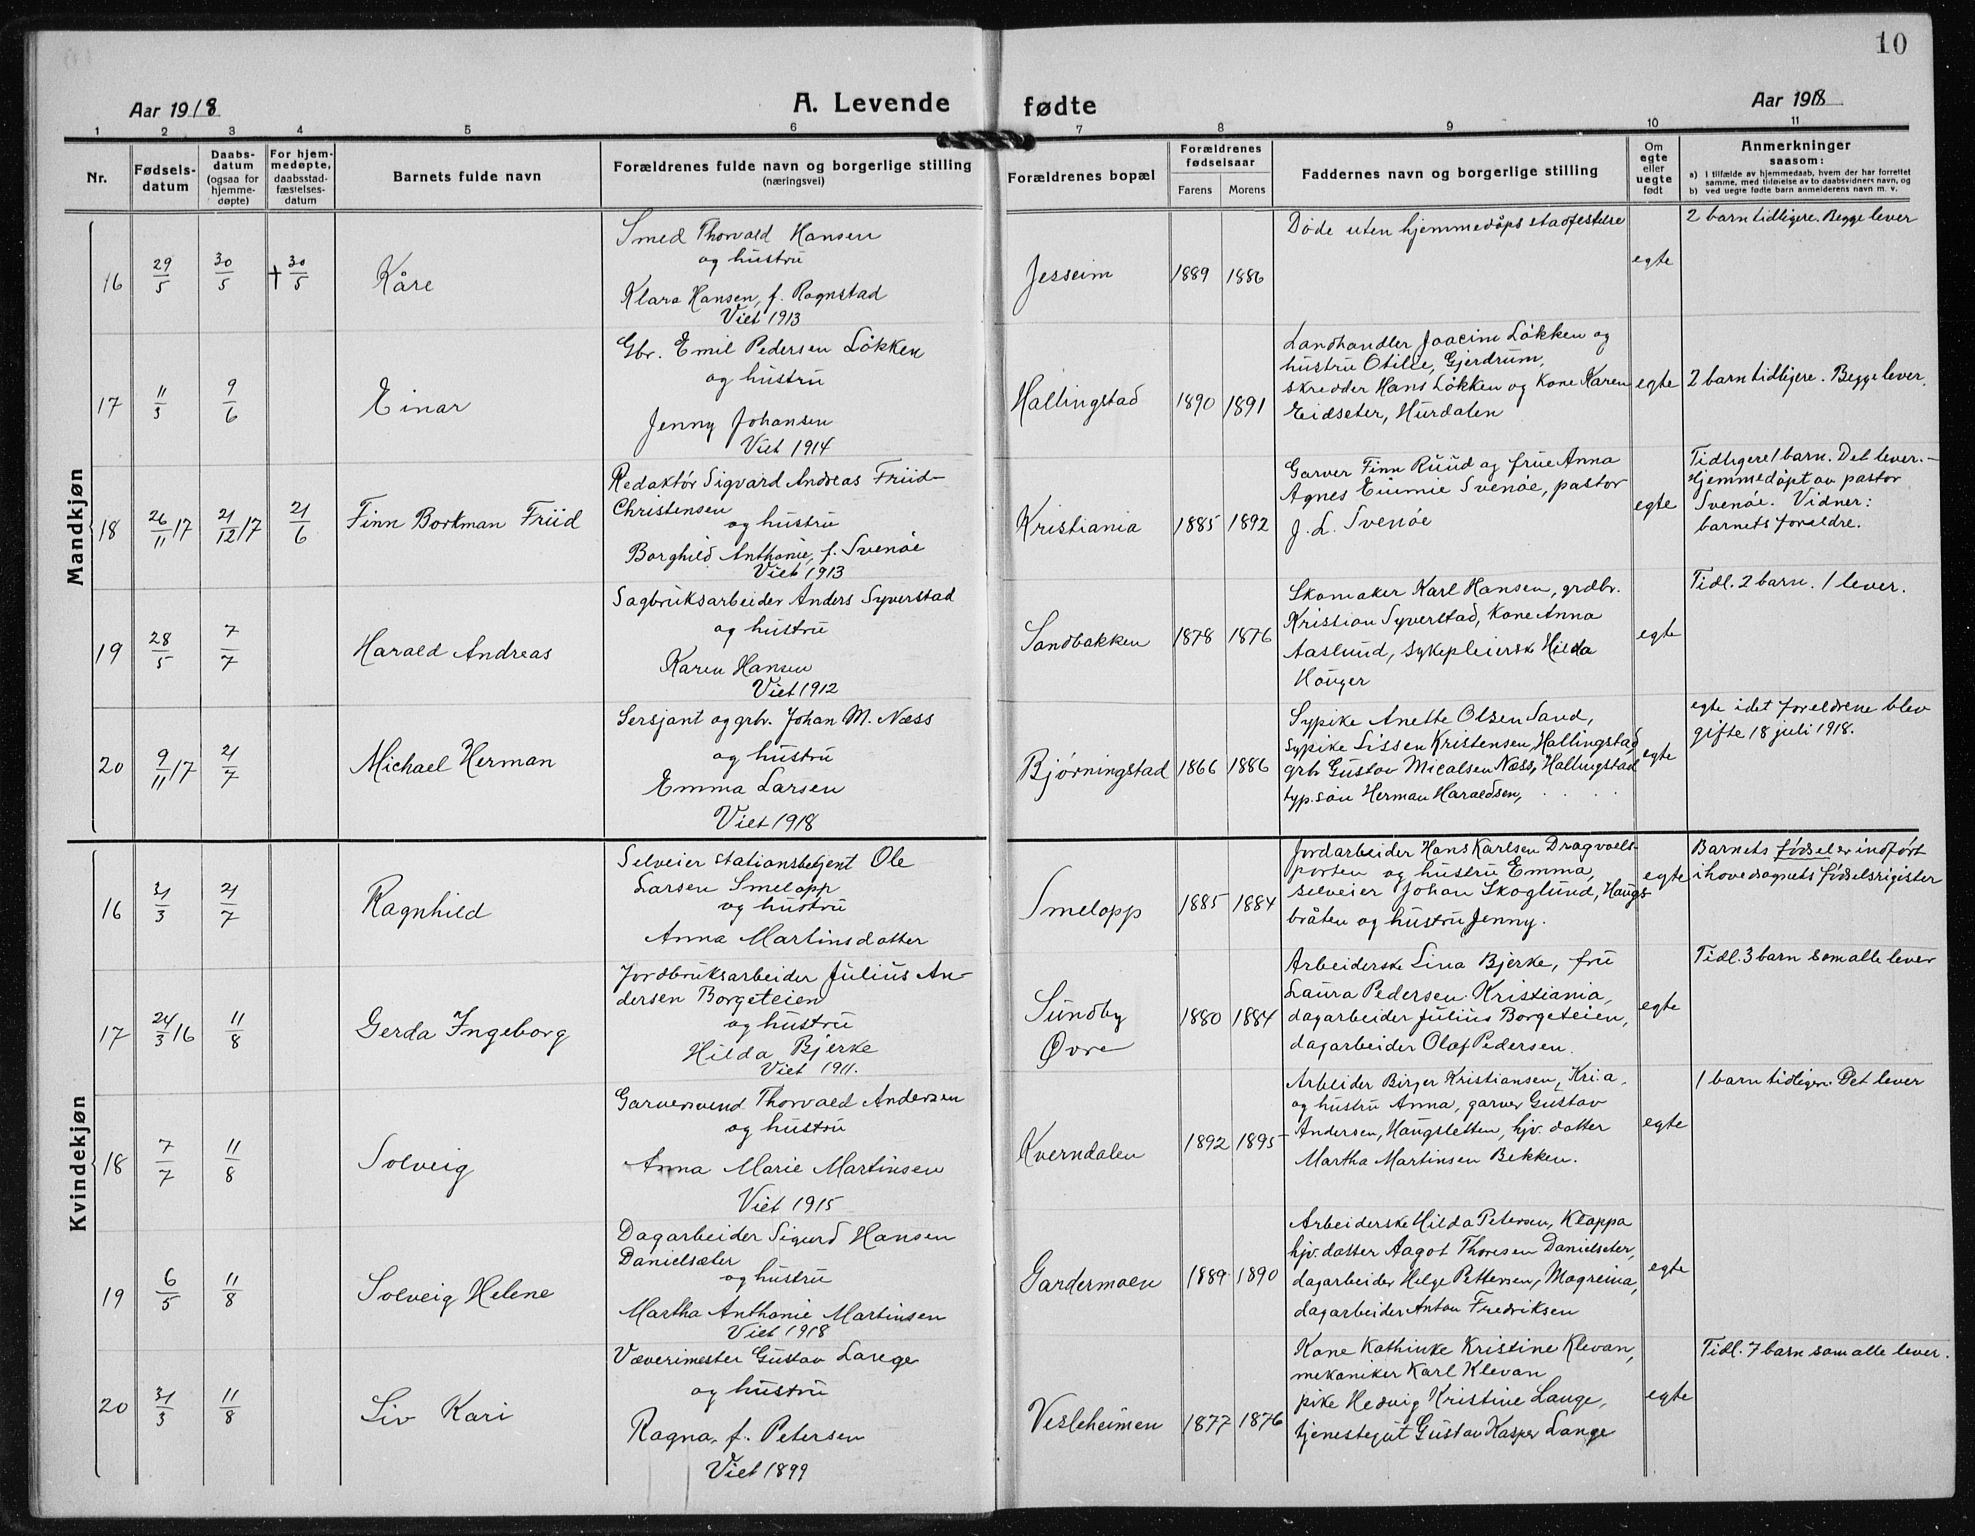 10
Aar 1918
A. Levende fødte
Aar 1918
1 2 3 4 5 6 7 8 9 10 11
Nr.
Fødsels-
datum
Daabs-
datum
(ogsaa for
hjemme-
døpte)
For hjem-
medøpte,
daabsstad-
fæstelses-
datum
Barnets fulde navn
Forældrenes fulde navn og borgerlige stilling
(næringsvei)
Forældrenes bopæl
Forældrenes
fødselsaar
Farens Morens
Faddernes navn og borgerlige stilling
Om
egte
eller
uegte
født
Anmerkninger
saasom:
a) I tilfælde av hjemmedaab, hvem der har forrettet
samme, med tilføielse av to daabsvidners navn, og
b) ved uegte fødte barn anmelderens navn m. v.
Mandkjøn
16
29/5
30/5
†30/5
Kåre
Smed Thorvald Hansen
og hustru
Klara Hansen, f. Ragnstad
Viet 1913
Jesseim
1889 1886
Døde uten hjemmedåps stadfestelse
egte
2 barn tidligere. Begge lever
17
11/3
9/6
Einar
Gbr. Emil Pedersen Løkken
og hustru
Jenny Johansen
Viet 1914
Hallingstad
1890 1891
Landhandler Joacim Løkken og
hustru Otilie, Gjerdrum,
skredder Hans Løkken og Kone Karen
Eidseter, Hurdalen
egte
2 barn tidligere. Begge lever.
18
26/11 17
21/12 17
21/6
Finn Borkman Friid
Redaktør Sigvard Andreas Friid-
Christensen
og hustru
Borghild Anthonie, f. Svenøe
Viet 1913
Kristiania
1885 1892
Garver Finn Ruud og frue Anna
Agnes Eunnie Svenøe, pastor
J. L. Svenøe
egte
Tidligere 1 barn. Det lever. -
Hjemmedøpt av pastor
Svenøe. Vidner:
barnets foreldre.
19
28/5
7/7
Harald Andreas
Sagbruksarbeider Anders Syverstad
og hustru
Karen Hansen
Viet 1912
Sandbakken
1878 1876
Skomaker Karl Hansen, grdbr.
Kristian Syverstad, Kone Anna
Aaslund, sykepleierske Hilda
Hauger
egte
Tidl. 2 barn. 1 lever.
20
9/11 17
21/7
Michael Herman
Sersjant og grbr. Johan M. Næss
og hustru
Emma Larsen
Viet 1918
Bjørningstad
1866 1886
Sypike Anette Olsen Sand,
sypike Lissen Kristensen, Hallingstad
grbr Gustav Micalsen Næss, Hallingstad
typ.søn Herman Haraldsen, . . . .
egte
egte idet foreldrene blev
gifte 18 juli 1918.
Kvindekjøn
16
31/3
21/7
Ragnhild
Selveier stationsbetjent Ole
Larsen Smelopp
og hustru
Anna Martinsdatter
Smelopp
1885 1884
Jordarbeider Hans Karlsen Dragvols-
porten og hustru Emma,
selveier Johan Skoglund, Haugs-
bråten og hustru Jenny.
egte
Barnets fødsel er indført
i hovedsognets fødselsrigister
17
24/3 16
11/8
Gerda Ingeborg
Jordbruksarbeider Julius An-
dersen Borgeteien
og hustru
Hilda Bjerke
Viet 1911.
Sundby
Øvre
1880 1884
Arbeiderske Lina Bjerke, fru
Laura Pedersen Kristiania,
dagarbeider Julius Borgeteien,
dagarbeider Olaf Pedersen.
egte
Tidl. 3 barn som alle lever
18
7/7
11/8
Solveig
Garversvend Thorvald Andersen
og hustru
Anna Marie Martinsen
Viet 1915
Kverndalen
1892 1895
Arbeider Birger Kristiansen, Kr.i.a,
og hustru Anna, garver Gustav
Andersen, Haugsletten, hjv. datter
Martha Martinsen Bekken.
egte
1 barn tidligere. Det lever
19
6/5
11/8
Solveig Helene
Dagarbeider Sigurd Hansen
Danielsæter
og hustru
Martha Anthonie Martinsen
Viet 1918
Gardermoen
1889 1890
Arbeiderske Hilda Petersen, Klappa
hjv. datter Aagot Thoresen Danielseter,
dagarbeider Helge Pettersen, Mogreina,
dagarbeider Anton Fredriksen
egte
20
31/3
11/8
Liv Kari
Væverimester Gustav Lange
og hustru
Ragna, f. Petersen
Viet 1899
Vesleheimen
1877 1876
Kone Kathinke Kristine Klevan,
mekaniker Karl Klevan
pike Hedvig Kristine Lange,
tjenestegut Gustav Kasper Lange
egte
Tidl. 7 barn som alle lever.